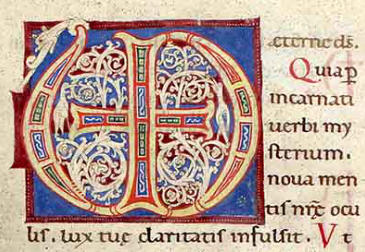 æterne ds̄.
Quia p
incarnati
uerbi my
sterium.
noua men
tis nr̄ę ocu
lis. lux tuę claritatis infulsit. Vt